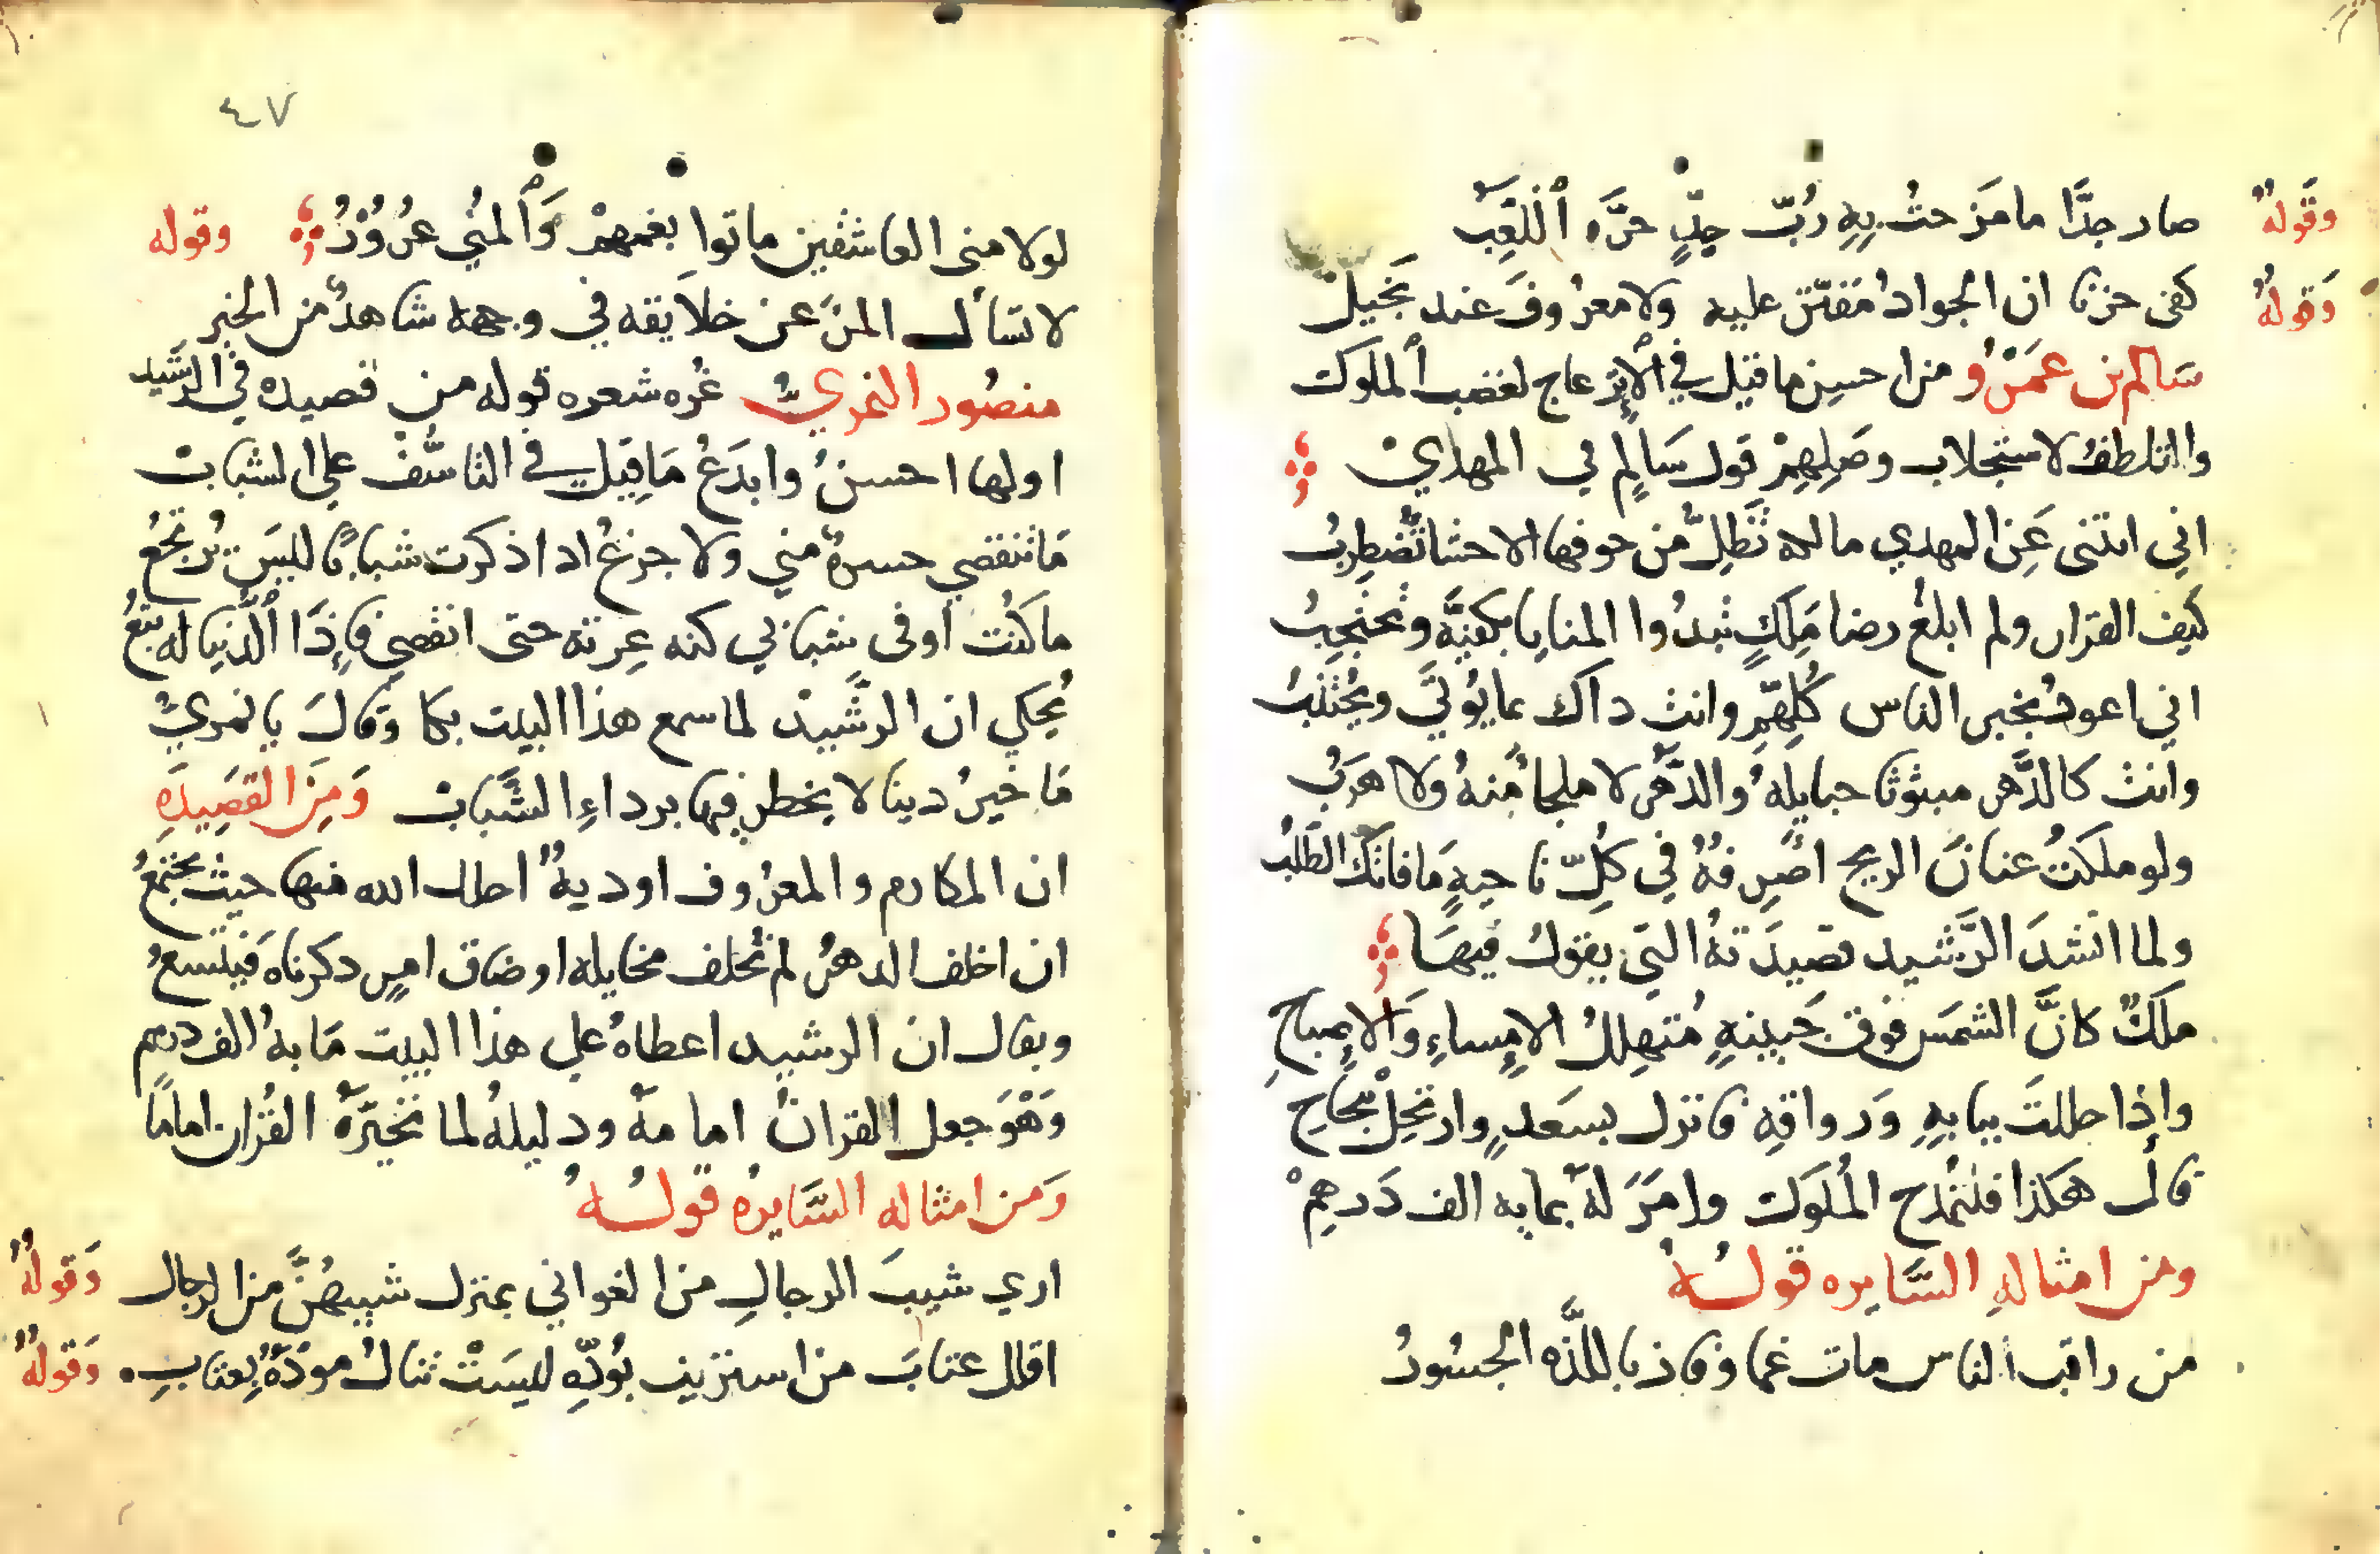 وقوله صار جدًّا ما مزحتُ بِهِ رُبّ جِدٍّ جرَّه ٱللَّعِبُ
وَقولهُ كفى حزنا ان الجوادُ مُقتّر عليه ولا معرُوفَ عند بَخيلْ
سَالم بن عَمرْو من احسن ما قيل في الإنزعاج لغضب ٱلملوك
والتلطف لاستجلاب وصَلِهِمْ قول سَالمٍ في المهدي
اني اتتنى عَن المهدي مالحه تَظلّ من خوفها الاحشا تضطرِبُ
كيف القرار ولم ابلغ رضا مَلِكٍ تبدُوا المنايا بكفيَّه وتحتجِبُ
اني اعوذُ بخير الناس كُلِّهِّمِ وانت داك بما يُوتَي ويُجْتَنَبُ
وانت كالدَّهر مبثوثا حبايلهُ والدَّهْر لا ملجاُ مِنهُ ولا هَرَبُ
ولو ملكتُ عنانَ الريح اصرِفهُ في كُلِّ ناحيةٍ مَا فاتَكَ الطّلبُ
ولما انشدَ الرَّشيد قصيدَتهُ التي يقولُ فيهَا
ملكٌ كانَّ الشمَس فوق جَبينهِ مُتهلِلُ الإمساءِ وَالإصباحِ
وإذا حللتَ ببابهِ وَرواقِهِ فانزل بسَعدٍ وارتحِلْ بنجَاحِ
قال هَكذا فلتُمْدح الملُوَك وامَرَ لهَ بمايه الف دَرهِمْ
ومن امثالهِ السَّايره قولهُ
من راقب الناس مات غما وفاز باللذَّه الجسُورُ
٤٧
لولا منى العاشقين ماتوا بغمهمْ وَٱلمُني غرُوْرُ وقوله
لا تسأل المرَ عن خلايقه في وجهه شاهدٌ من الخبر
منصُور النمريُّ غُره شعره قوله من قصيده في الرَشيد
اولها احسنُ وابدَعُ مَا قِيل في التاسُّف علي الشباب
مَا تنقضي حسرةٌ مني ولا جزعُ اد اذكرت شبابًا ليسَ يُرتجَعُ
ما كنُت أوفى شبابي كنه عِرته حتى انقضي فإِذَا ٱلدّنيا له تبَعُ
يُحكي ان الرشَّيد لما سمع هذا البيت بكا وَقالَ يا نمريُ
مَا خيرُ دينا لا يخطر فيها برداءِ الشَّبَاب وَمِنَ القصَيِدَهِ
ان المكارم والمعرُوف اوديهٌ احلك الله منها حيث تجتمعُ
ان اخلف الدهُر لم تُخلف مخايله او ضاق امرٍ دكرناه فَيتسعُ
ويقال ان الرشيد اعطاهُ علي هذا البيت مَايهُ الف درهم
وَهْوَ جعل القرانُ امامهُ ودليلهُ لما تخيَّرَهُ القُران امامًا
وَمن امثاله السَّايرهُ قولهُ
اري شيبَ الرجالِ من الغواني بمنزل شيبهُنَّ من الرجال وَقولهٌ
اقلل عتابَ من استزيد بوُدِّهِ ليسَتْ تنالُ مودَّةٌ بِعتابِ. وَقولهٌ